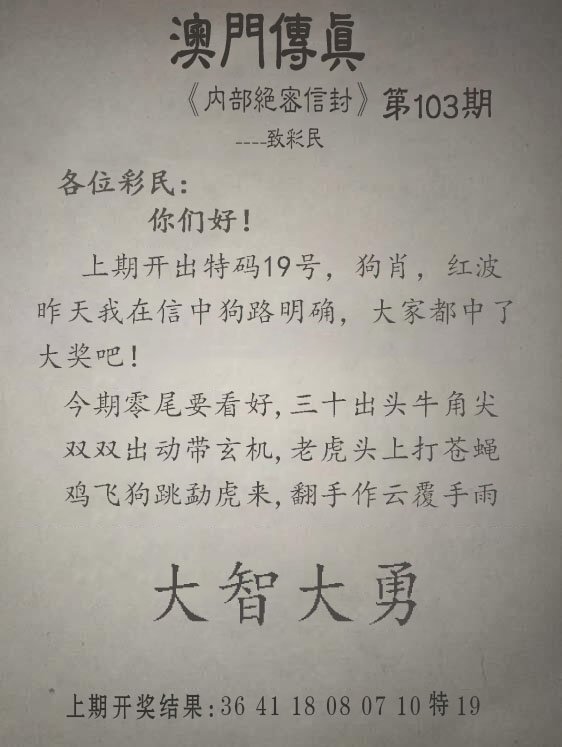 澳門傳眞
《内部絕密信封》第103期
----致彩民
各位彩民:
你们好!
上期开出特码19号，狗肖，红波
昨天我在信中狗路明确，大家都中了
大奖吧!
今期零尾要看好,三十出头牛角尖
双双出动带玄机,老虎头上打苍蝇
鸡飞狗跳勐虎来,翻手作云覆手雨
大智大勇
上期开奖结果:36 41 18 08 07 10 特 19